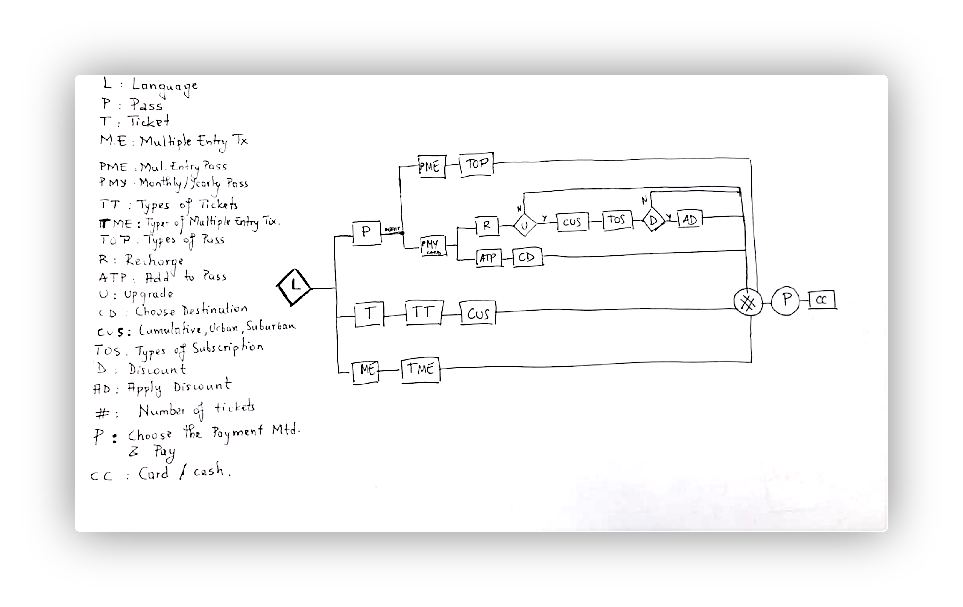 L : Language
P : Pass
T : Ticket
M.E : Multiple Entry Tx
PME : Mul. Entry Pass
PMY : Monthly/Yearly Pass
TT : Types of Tickets
TME : Types of Multiple Entry Tix.
TOP : Types of Pass
R : Recharge
ATP : Add to Pass
U : Upgrade
CD : Choose Destination
CUS : Cumulative, Urban, Suburban
TOS : Types of Subscription
D : Discount
AD : Apply Discount
# : Number of tickets
P : Choose the Payment Mtd.
& Pay
CC : Card / cash.
PME TOP
N N
R U Y CUS TOS D Y AD
P
PMY
ATP CD
L
# P CC
T TT CUS
ME TME